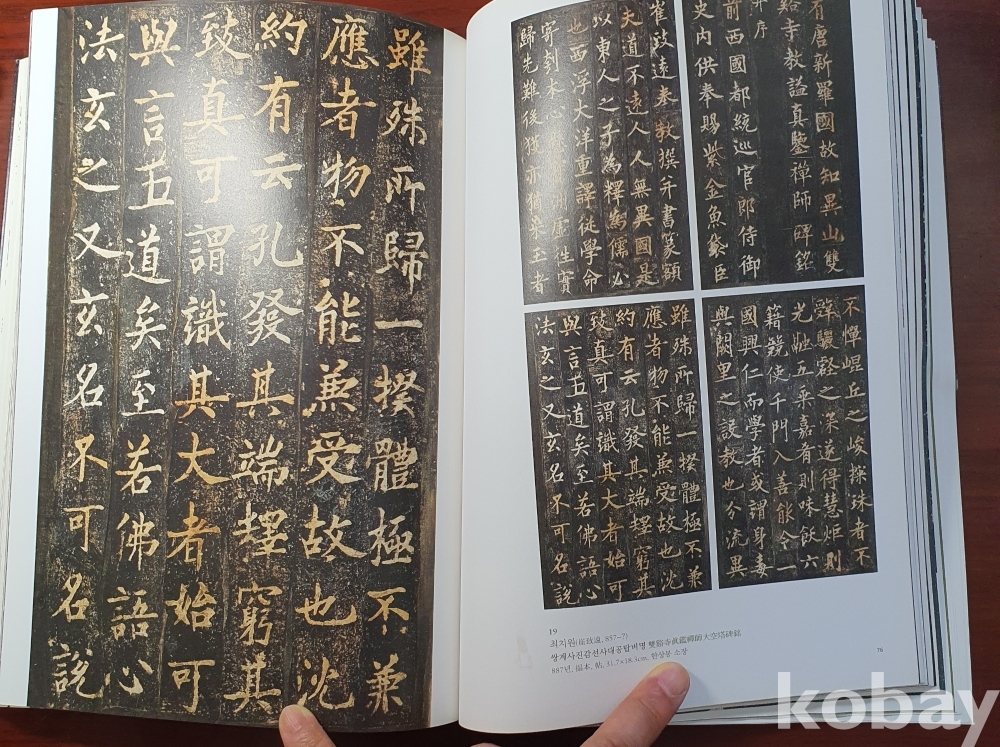 雖殊所歸一揆體極不兼
應者物不能兼受故也沈
約有云孔發其端釋窮其
致真可謂識其大者始可
與言至道矣至若佛語心
法玄之又玄名不可名說
有唐新羅國故知異山雙
谿寺教謚真鑒禪師碑銘
并序
前西國都統巡官郎侍御
史內供奉賜紫金魚袋臣
崔致遠奉教撰并書篆額
夫道不遠人人無異國是
以東人之子為釋為儒必
也西浮大洋重譯從學命
寄刳木心洲虛往實
歸先難後獲亦猶采玉者
不憚崐丘之峻探珠者不
辤驪壑之深遂得慧炬則
光融五乘嘉肴則味飫六
籍競使千門入善能令一
國興仁而學者或謂身毒
與闕里之設教也分流異
雖殊所歸一揆體極不兼
應者物不能兼受故也沈
約有云孔發其端釋窮其
致真可謂識其大者始可
與言至道矣至若佛語心
法玄之又玄名不可名說
19
최치원(崔致遠, 857~?)
쌍계사진감선사대공탑비명 雙谿寺眞鑑禪師大空塔碑銘
887년, 搨本, 帖, 31.7×18.3cm, 한상봉 소장
76
kobay